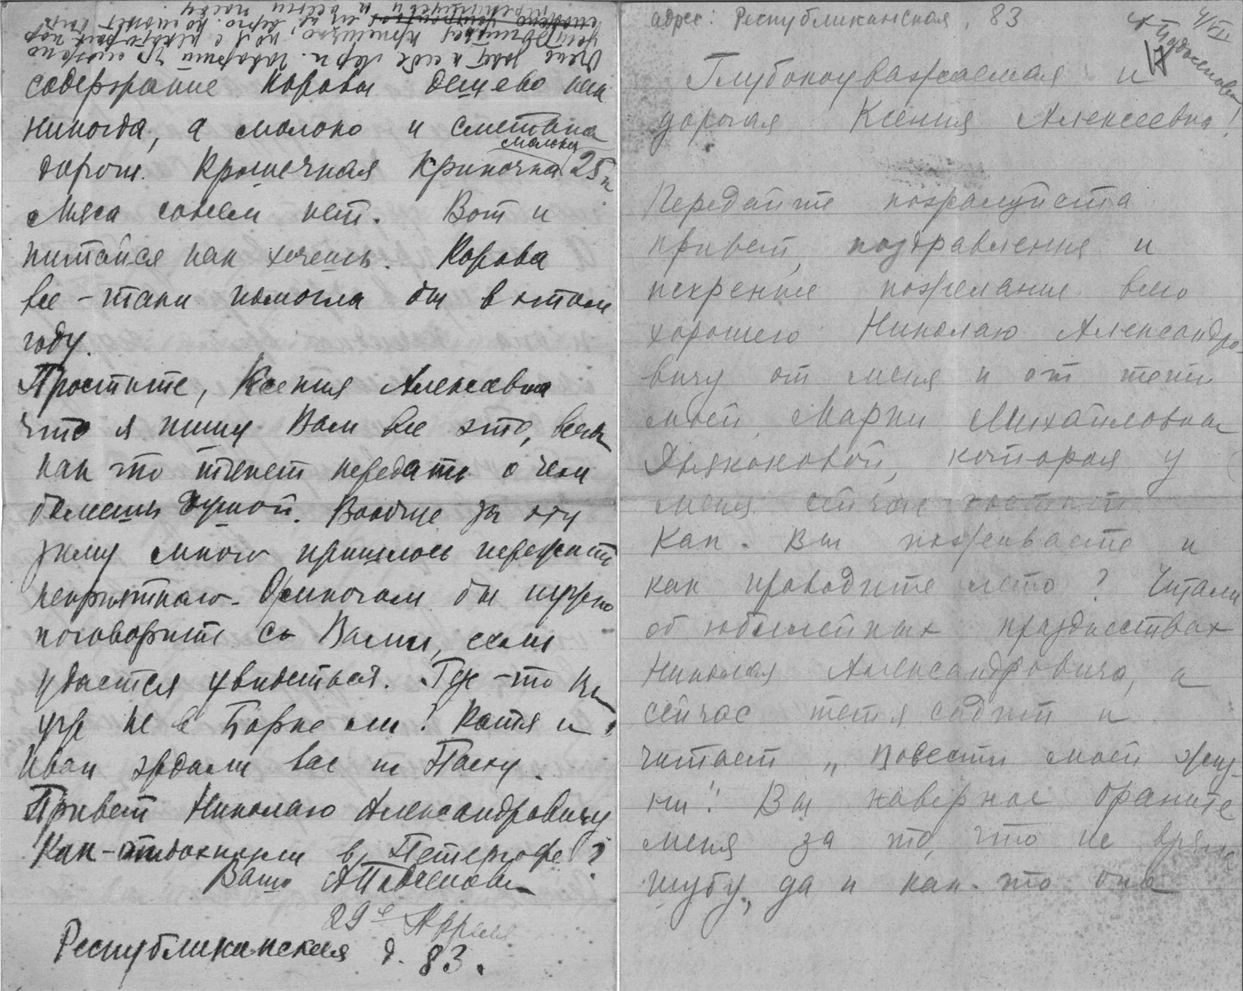 содержание коровы дешево как
никогда, а молоко и сметана
дороги. Крошечная криночка молока 25 к
Мяса совсем нет. Вот и
питайся как хочешь. Корова
все-таки помогла бы в этом
году.
Простите, Ксения Алексеевна
что я пишу Вам все это, 
как-то тянет передать о чем
болеешь душой. Вообще за эту
зиму много пришлось пережить
неприятного. О многом бы нужно
поговорить с Вами, если
удастся увидеться. Где-то Вы
уж не в Борке ли? Катя и
Иван ждали вас на Пасху.
Привет Николаю Александровичу
Как отдохнули в Петергофе?
Ваша
29е Апреля
Республиканская д. 83.
адрес: Республиканская 83
Глубокоуважаемая и
дорогая Ксения Алексеевна!
Передайте пожалуйста
привет, поздравления и
искренние пожелания всего
хорошего Николаю Александро-
вичу от меня и от тети
моей, Марии Михайловны
Дьяконовой, которая у
меня сейчас гостит.
Как Вы поживаете и
как проводите лето? Читали
об юбилейных празднествах
Николая Александровича, а
сейчас тетя сидит и
читает „Повести моей жиз-
ни". Вы наверное браните
меня за то, что не
шубу, да и как-то она